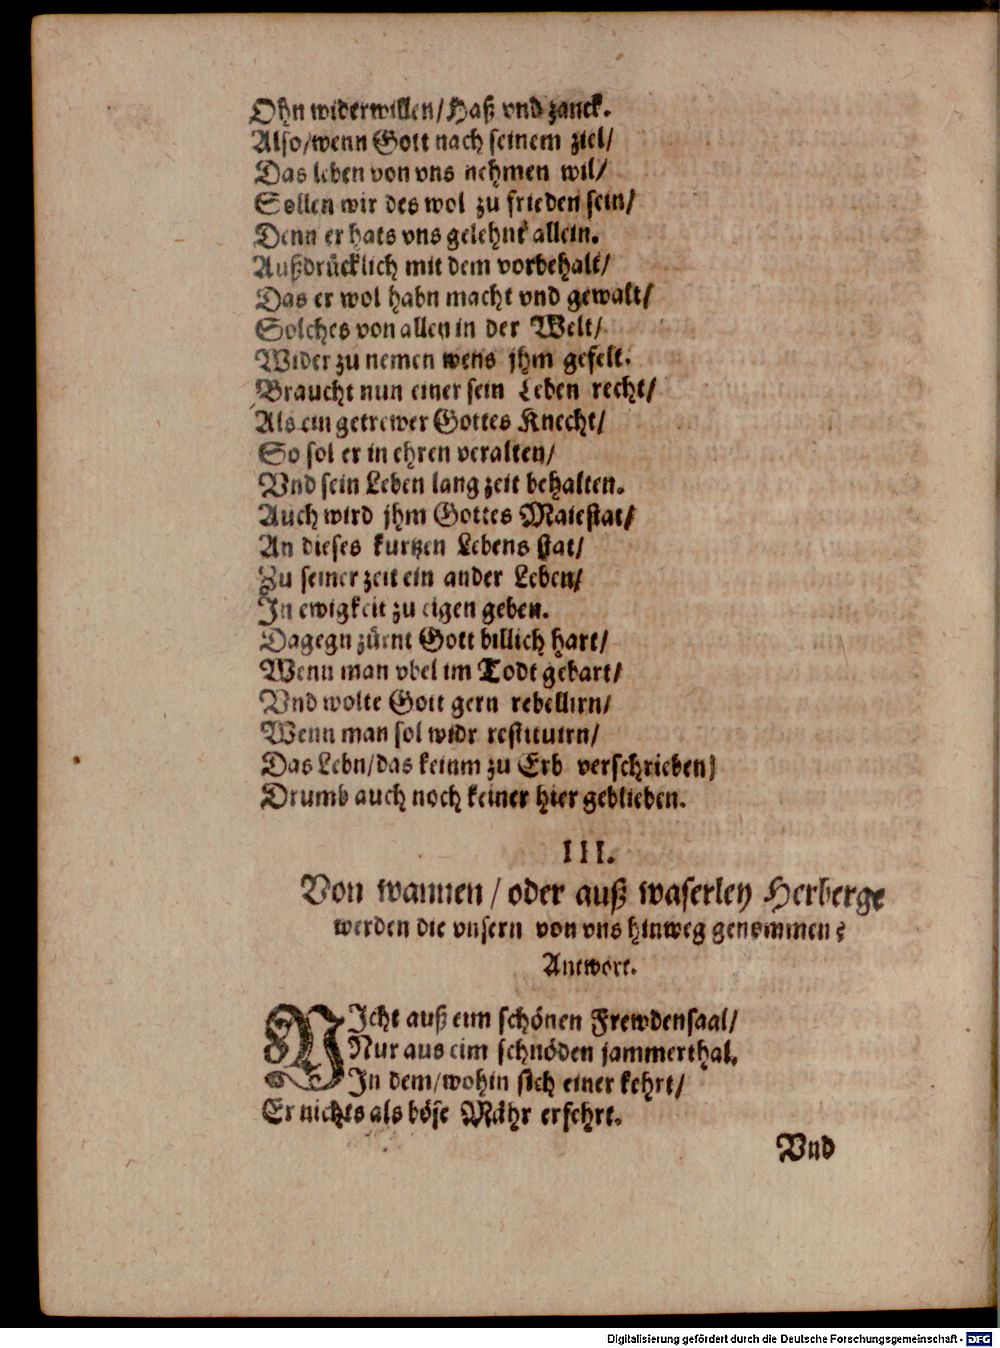 Ohn widerwillen/Haß vnd zanck.
Also/wenn Gott nach seinem ziel/
Das leben von vns nehmen wil/
Sollen wir des wol zu frieden sein/
Denn er hats vns gelehnt allein.
Außdrücklich mit dem vorbehalt/
Das er wol habn macht vnd gewalt/
Solches von allen in der Welt/
Wider zu nemen wens jhm gefelt.
Braucht nun einer sein Leben recht/
Als ein getrewer Gottes Knecht/
So sol er in ehren veralten/
Vnd sein Leben lang zeit behalten.
Auch wird jhm Gottes Maiestat/
An dieses kurtzen Lebens stat/
Zu seiner zeit ein ander Leben/
In ewigkeit zu eigen geben.
Dagegn zürnt Gott billich hart/
Wenn man vbel im Todt gebart/
Vnd wolte Gott gern rebellirn/
Wenn man sol widr restituirn/
Das Lebn/das keinm zu Erb verschrieben/
Drumb auch noch keiner hier geblieben.
III.
Von wannen/oder auß waserley Herberge
werden die vnsern von vns hinweg genommen?
Antwort.
NIcht auß eim schönen Frewdensaal/
Nur aus eim schnöden jammerthal.
In dem/wohin sich einer kehrt/
Er nichts als böse Mähr erfehrt.
Vnd
Digitalisierung gefördert durch die Deutsche Forschungsgemeinschaft - DFG